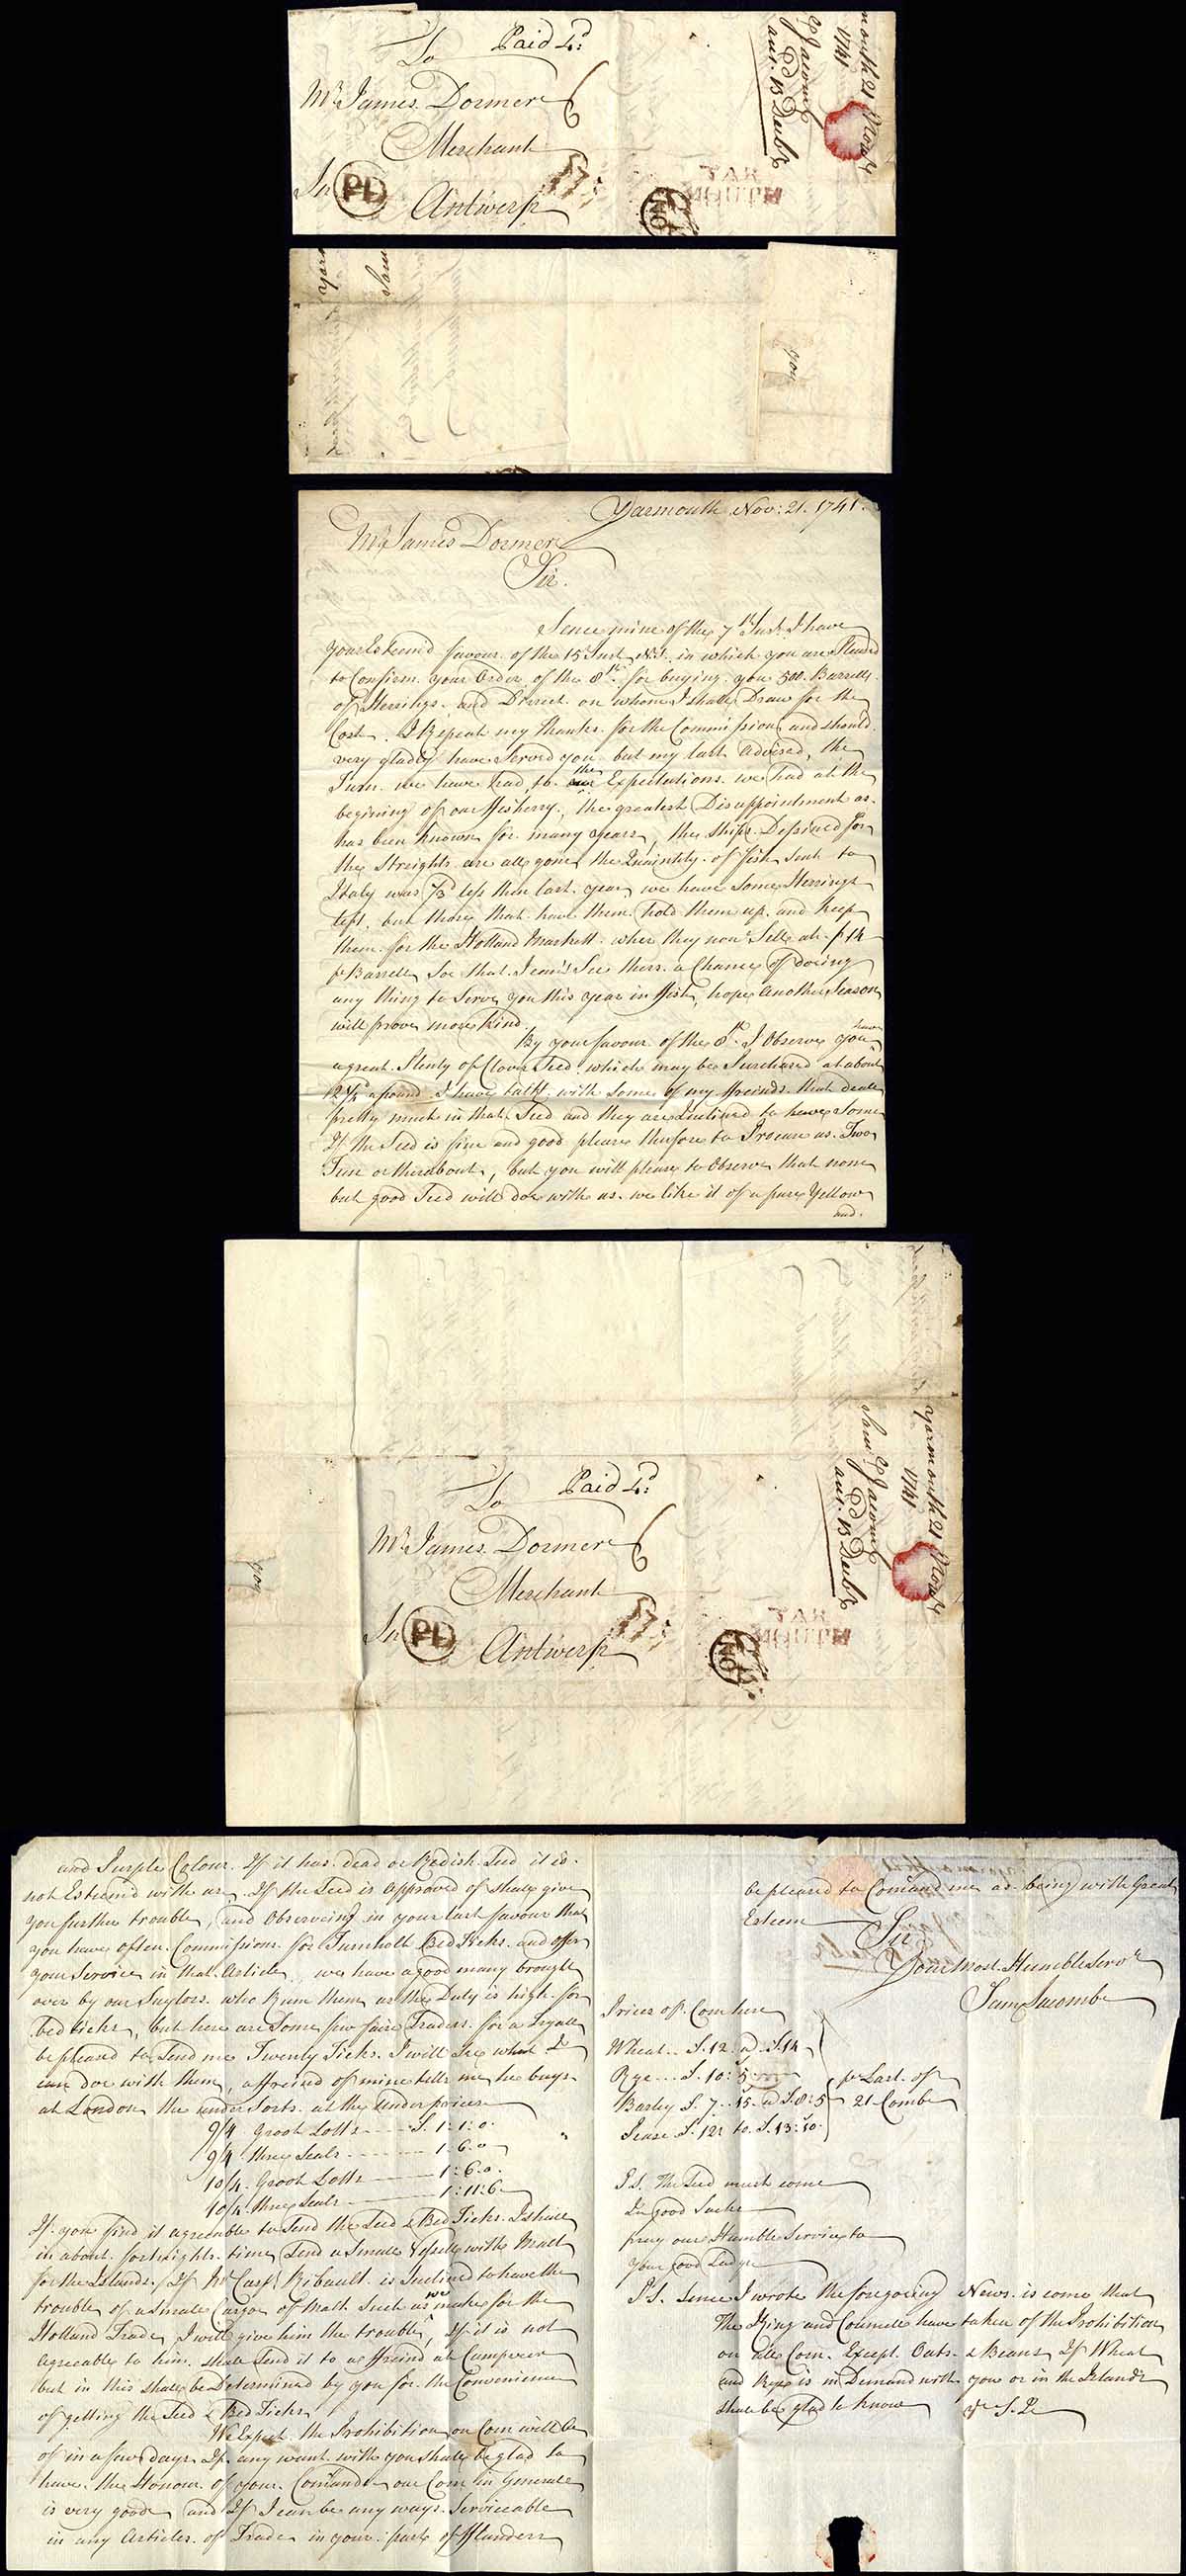 To Paid 4d
Mr James Dormer
Merchant
In PD Antwerp
mouth 21 Novbr
1741
Jacomb
ant. 13 Decbr
YAR
MOUTH
NO
you
Yarmouth Nov: 21. 1741.
Mr James Dormer
Sir.
Sence mine of the 7th Inst. I have
your Esteem'd favour of the 15 Inst N.S. in which you are Pleased
to Confirm your Order of the 8th for buying you 500 Barrells
of Herrings and Direct on whom I shall Draw for the
Cost. I Repeat my thanks for the Commission and should
very gladly have Served you but my last Advised, the
Turn we have had to the Expectations we had at the
begining of our ffisherry, the greatest Disappointment as
has been known for many years, the Ships Desined for
the Streights are all gone the Quaintity of fish sent to
Italy was 1/3d less then last year, we have some Herrings
left, but those that have them hold them up and keep
them for the Holland Markett where they now Sell at f 14
p Barrell Soe that I can't See there a Chance of doeing
any thing to Serve you this year in ffish, hope Another Season
will prove more kind.
By your favour of the 8th I Observe you have
a great Plenty of Clover Seed which may be Purchased at about
2 1/4 a pound I have talkt with some of my ffreinds that deale
pretty much in that Seed and they are Inclined to have Some
If the Seed is fine and good please therfore to Procure us Two
Tun or therabout, but you will please to Observe that none
but good Seed will doe with us we like it of a pure Yellow
and.
To Paid 4d
Mr James Dormer
Merchant
In PD Antwerp
Yarmouth 21 Novbr
1741
Sam Jacomb
ant. 13 Decbr
YAR
MOUTH
NO
you
and Purple Colour. If it has dead or Redish Seed it is
not Esteemd with us. If the Seed is approved of shall give
you further trouble, and Observeing in your last favour that
you have often Commissions for Turnholt Bed Ticks and offer
your Service in that Article we have a good many brought
over by our Saylors who Run them as the Duty is high for
bed ticks, but here are Some few faire Traders for a Tryall
be pleased to Send me Twenty Ticks. I will See what I
can doe with them, a ffreind of mine tells me he buys
at London the under Sorts at the under prices
9/4 Groot Lotts £ 1:1:0
9/4 three Seals 1:6:0
10/4 Groot Lotts 1:6:0
10/4 three Seals 1:11:6
If you find it agreeable to Send the Seed & Bed Ticks I shall
in about fortnights time Send a Small Vessell with Malt
for the Islands, If Mr Ribault is Inclined to have the
trouble of a small Cargoe of Malt Such as we make for the
Holland Trade, I will give him the trouble, If it is not
agreeable to him shall Send it to a ffreind at Campvere
but in this shall be Determined by you for the Convenience
of getting the Seed & Bed Ticks
We Expect the Prohibition on Corn will be
of in a few days If any want with you shall be glad to
have the Honour of your Comands our Corn in Generall
is very good and If I can be any ways Serviceable
in any Articles of Trade in your parts of fflanders
be pleased to Comand me as being with Great
Esteem
Sir
Your Most Humble Servt
Sam Jacomb
Prices of Corn here
Wheat £.12 a £.14
Rye £.10:5
Barley £ 7.15 a £ 8:5
Pease £.12 to £.13:10
p Last of
21 Combe
P.S. The Seed must come
In good Sacks
pray our Humble Service to
your good Lady
P.S. Sence I wrote the foregoeing News is come that
The King and Councill have taken of the Prohibition
on all Corn Except Oats & Beans, If Wheat
and Rye is in Demand with you or in the Islands
shall be glad to know